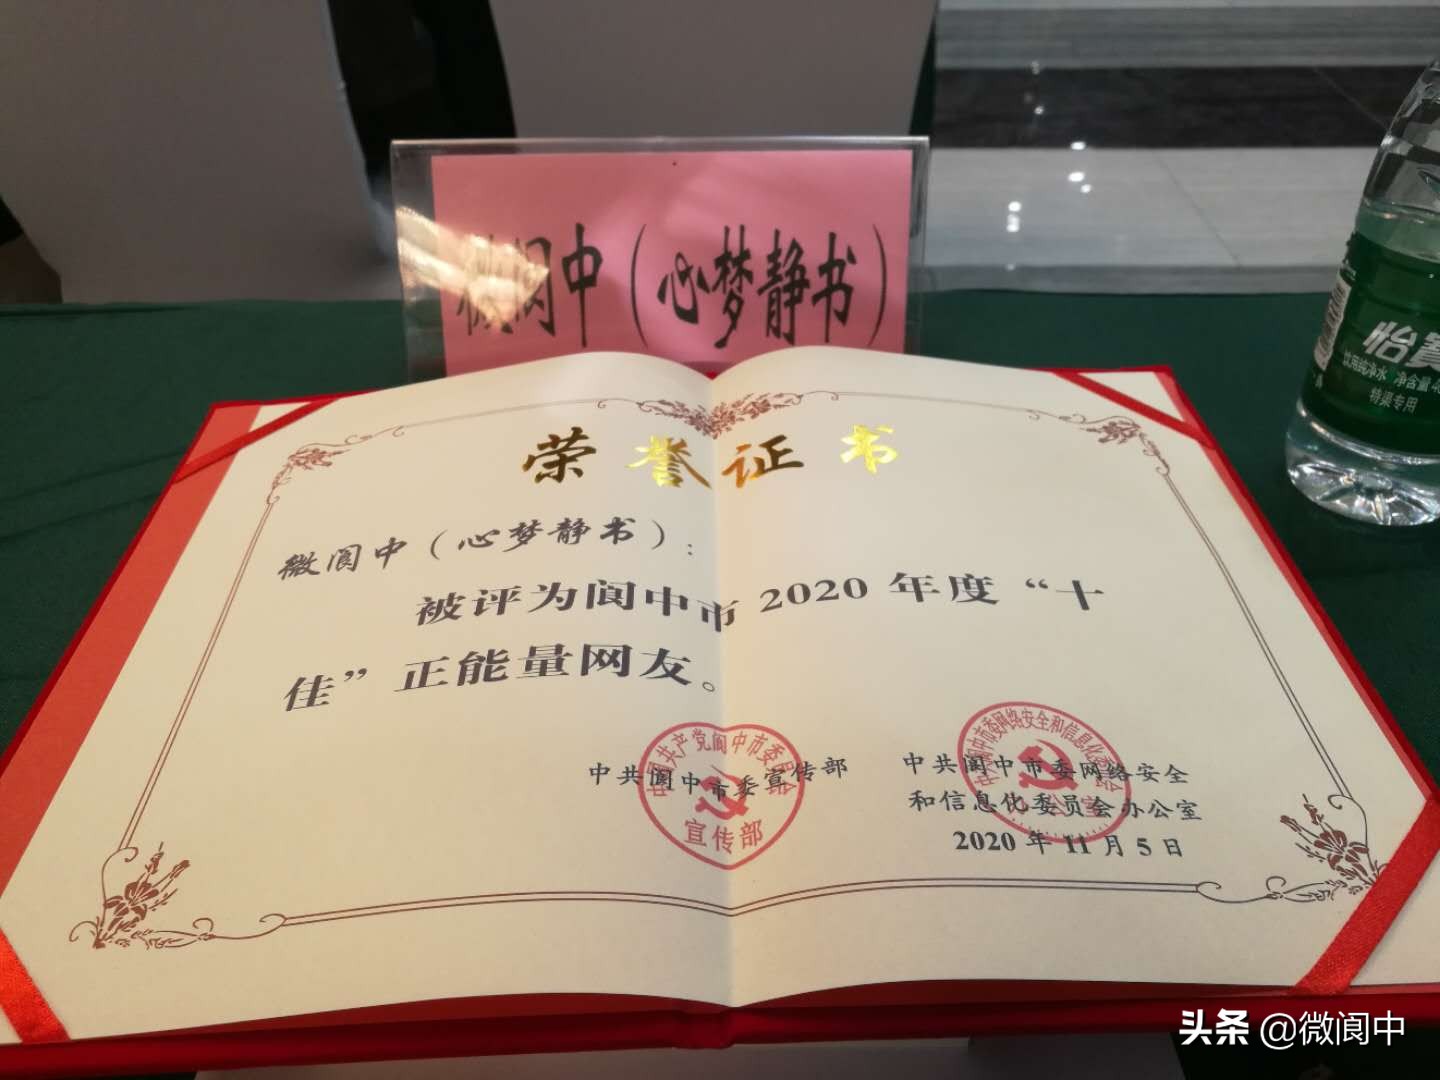 微阆中（心梦静书）
荣誉证书
微阆中（心梦静书）：
被评为阆中市 2020 年度“十
佳”正能量网友。
中共阆中市委宣传部
中共阆中市委网络安全
和信息化委员会办公室
2020 年 11 月 5 日
中国共产党阆中市委员会
宣传部
怡寶
饮用纯净水 净含量
特渠专用
头条 @微阆中